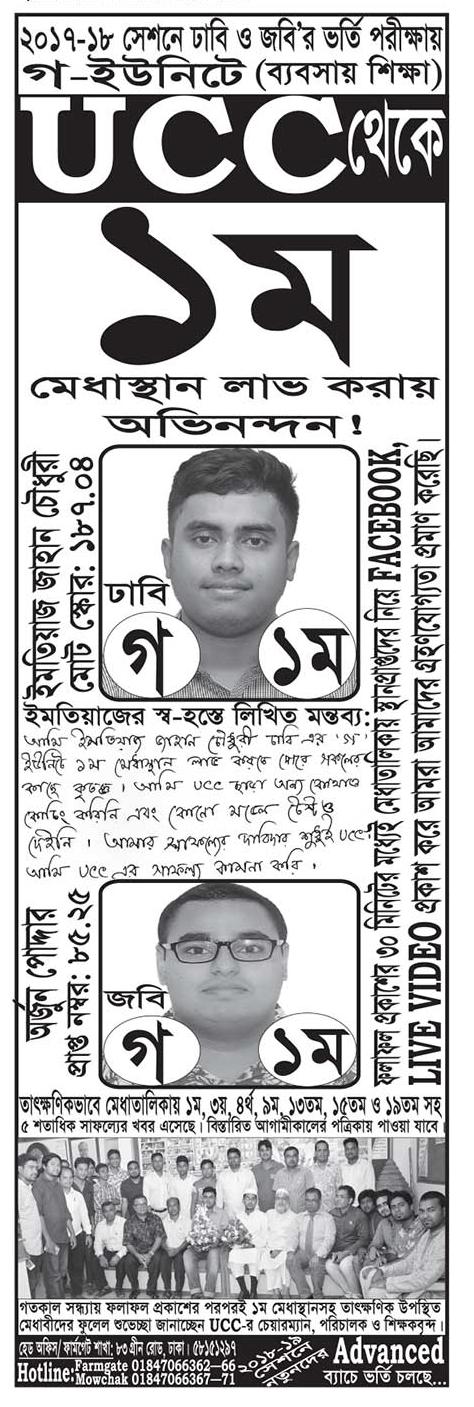 ২০১৭-১৮ সেশনে ঢাবি ও জবি'র ভর্তি পরীক্ষায়
গ-ইউনিটে (ব্যবসায় শিক্ষা)
UCC থেকে
১ম
মেধাস্থান লাভ করায়
অভিনন্দন!
ইমতিয়াজ জাহান চৌধুরী
মোট স্কোর: ১৮৭.০৪
ঢাবি
গ ১ম
ইমতিয়াজের স্ব-হস্তে লিখিত মন্তব্য:
আমি ইমতিয়াজ জাহান চৌধুরী ঢাবি এর 'গ'
ইউনিটে ১ম মেধাস্থান লাভ করতে পেরে সকলের
কাছে কৃতজ্ঞ। আমি UCC ছাড়া অন্য কোথাও
কোচিং করিনি এবং কোনো মডেল টেস্ট ও
দেইনি। আমার সাফল্যের দাবিদার শুধুই UCC.
আমি UCC এর সাফল্য কামনা করি।
অর্জুন পোদ্দার
প্রাপ্ত নম্বর: ৮৫.২৫
জবি
গ ১ম
ফলাফল প্রকাশের ৩০ মিনিটের মধ্যেই মেধাতালিকায় স্থানপ্রাপ্তদের নিয়ে FACEBOOK,
LIVE VIDEO প্রকাশ করে আমরা আমাদের গ্রহণযোগ্যতা প্রমাণ করেছি।
তাৎক্ষণিকভাবে মেধাতালিকায় ১ম, ৩য়, ৪র্থ, ৯ম, ১৩তম, ১৫তম ও ১৯তম সহ
৫ শতাধিক সাফল্যের খবর এসেছে। বিস্তারিত আগামীকালের পত্রিকায় পাওয়া যাবে।
গতকাল সন্ধ্যায় ফলাফল প্রকাশের পরপরই ১ম মেধাস্থানসহ তাৎক্ষণিক উপস্থিত
মেধাবীদের ফুলেল শুভেচ্ছা জানাচ্ছেন UCC-র চেয়ারম্যান, পরিচালক ও শিক্ষকবৃন্দ।
হেড অফিস/ ফার্মগেট শাখা: ৮৩ গ্রীন রোড, ঢাকা। ৫৮১৫১২৯৭
Hotline: Farmgate 01847066362—66
Mowchak 01847066367—71
২০১৮-১৯
সেশনে
নতুনদের
Advanced
ব্যাচে ভর্তি চলছে...